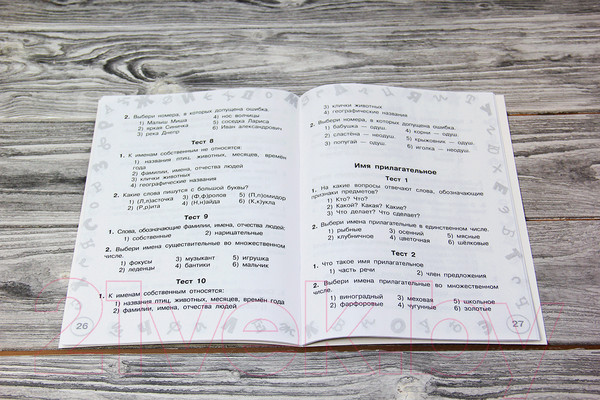 2. Выбери номера, в которых допущена ошибка.
1) Малыш Миша 4) нос волчицы
2) яркая Синичка 5) соседка Лариса
3) река Днепр 6) Иван александрович
Тест 8
1. К именам собственным не относятся:
1) названия птиц, животных, месяцев, времён
года
2) фамилии, имена, отчества людей
3) клички животных
4) географические названия
2. Какие слова пишутся с большой буквы?
1) (Л,л)асточка 3) (Ф,ф)ролов 5) (П,п)омидор
2) (Р,р)ита 4) (Н,н)айда 6) (К,к)укла
Тест 9
1. Слова, обозначающие фамилии, имена, отчества людей:
1) собственные 2) нарицательные
2. Выбери имена существительные во множественном
числе.
1) фокусы 3) музыкант 5) игрушка
2) леденцы 4) бантики 6) мальчик
Тест 10
1. К именам собственным относятся:
1) названия птиц, животных, месяцев, времён года
2) фамилии, имена, отчества людей
26
3) клички животных
4) географические названия
2. Выбери номера, в которых допущена ошибка.
1) бабушка — одуш. 4) корни — одуш.
2) сластёна — неодуш. 5) крыжовник — одуш.
3) попугай — одуш. 6) иголка — неодуш.
Имя прилагательное
Тест 1
1. На какие вопросы отвечают слова, обозначающие
признаки предметов?
1) Кто? Что?
2) Какой? Какая? Какие?
3) Что делает? Что сделает?
2. Выбери имена прилагательные в единственном числе.
1) рыбные 3) осенний 5) мясные
2) клубничное 4) цветочная 6) шёлковые
Тест 2
1. Что такое имя прилагательное
1) часть речи 2) член предложения
2. Выбери имена прилагательные во множественном
числе.
1) виноградный 3) меховая 5) школьное
2) фарфоровые 4) чугунные 6) золотые
27
21vek.by